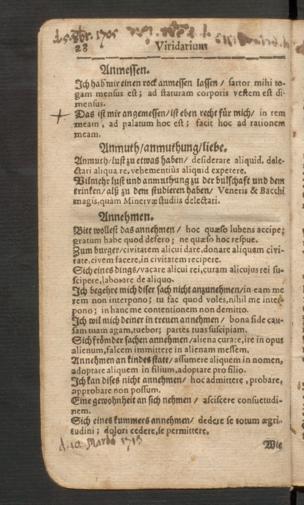 28 Viridarium
Anmessen.
Ich hab mir einen rock anmessen lassen / sartor mihi to-
gam mensus est; ad staturam corporis vestem est di-
mensus.
Das ist mir angemessen/ist eben recht für mich/ in rem
meam, ad palatum hoc est; facit hoc ad rationem
meam.
Anmuth/anmuthung/liebe.
Anmuth/lust zu etwas haben/ desiderare aliquid, dele-
ctari aliqua re, vehementius aliquid expetere.
Vilmehr lust und anmuthung zu der bulschaft und dem
trinken/als zu dem studieren haben/ Veneris & Bacchi
magis, quam Minervæ studiis delectari.
Annehmen.
Bitt wollest das annehmen / hoc quæso lubens accipe;
gratum habe quod defero; ne quæso hoc respue.
Zum burger/civitatem alicui dare, donare aliquem civi-
tate, civem facere, in civitatem recipere.
Sich eines dings/vacare alicui rei, curam alicujus rei su-
scipere, laborare de aliquo.
Ich begehre mich diser sach nicht anzunehmen/in eam me
rem non interpono; tu fac quod voles, nihil me inter-
pono; in hanc me contentionem non demitto.
Ich wil mich deiner in treuen annehmen / bona side cau-
sam tuam agam, tuebor; partes tuas suscipiam.
Sich frömder sachen annehmen/aliena curare, ire in opus
alienum, falcem immittere in alienam messem.
Annehmen an kindes statt/ assumere aliquem in nomen,
adoptare aliquem in filium, adoptare pro filio.
Ich kan dises nicht annehmen/ hoc admittere, probare,
approbare non possum.
Eine gewohnheit an sich nehmen / asciscere consuetudi-
nem.
Sich eines kummers annehmen/ dedere se totum ægri-
tudini; dolori cedere, se permittere.
Wie